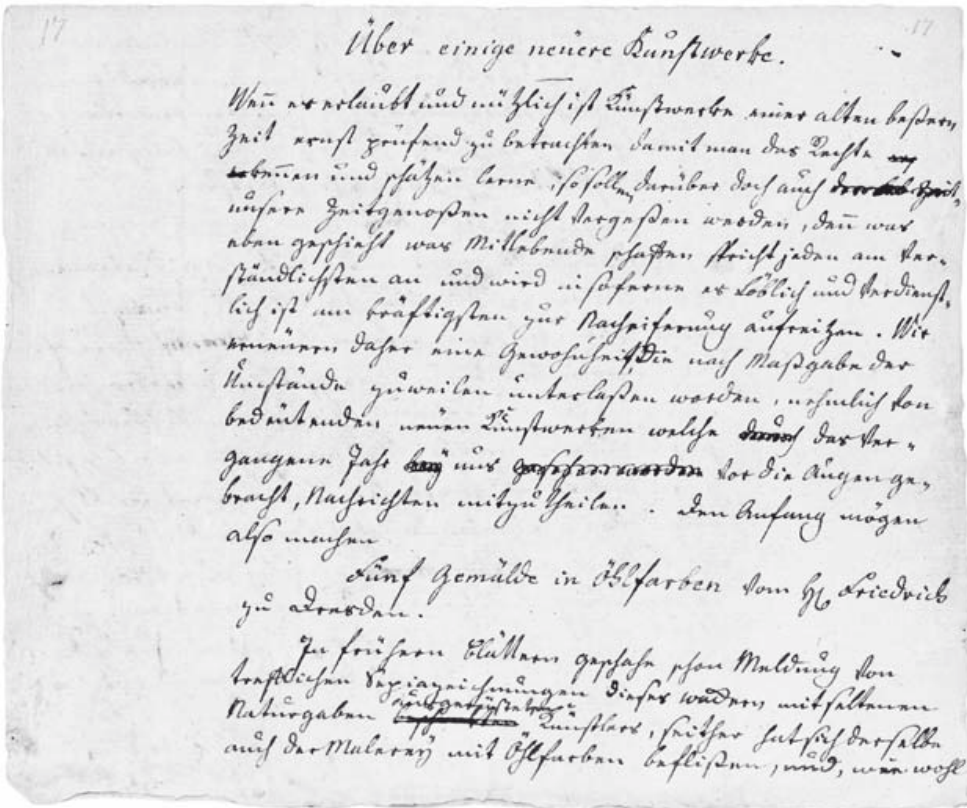 17 17
Über einige neüere Kunstwerke.
Wenn es erlaubt und nützlich ist Kunstwerke einer alten beßern
Zeit ernst prüfend zu betrachten damit man das Rechte
erkennen und schätzen lerne, so sollen darüber doch auch
unsere Zeitgenoßen nicht vergeßen werden, denn was
eben geschieht was Mitlebende schaffen spricht jeden am ver-
ständlichsten an und wird insoferne es löblich und verdienst-
lich ist am kräftigsten zur Nacheiferung aufreitzen. Wir
erneüern daher eine Gewohnheit, die nach Maßgabe der
Umstände zuweilen unterlaßen worden, nehmlich von
bedeütenden neüen Kunstwerken welche durch das ver-
gangene Jahr bey uns gesehen worden vor die Augen ge-
bracht, Nachrichten mitzutheilen. Den Anfang mögen
also machen
Fünf Gemälde in Öhlfarben vom H. Friedrich
zu Dresden.
In frühern Blättern geschahe schon Meldung von
trefflichen Sepiazeichnungen dieses wackern mit seltenen
ausgerüsteten
Naturgaben Künstlers, seither hat sich derselbe
auch der Malerey mit Öhlfarben beflißen, und, wie wohl